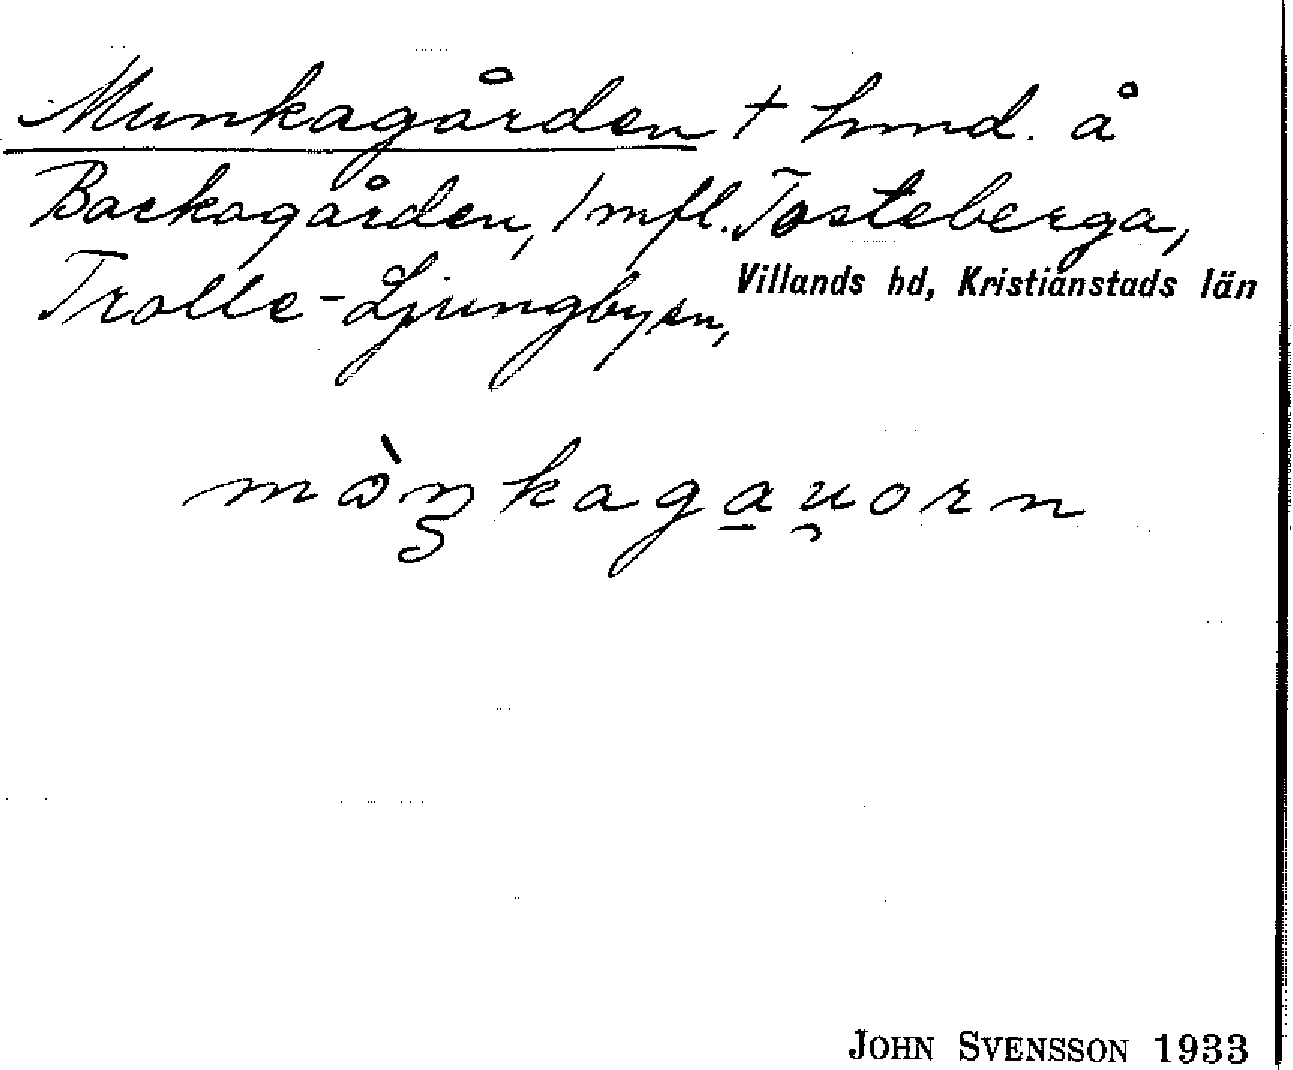 Munkagården + hmd. å
Backagården, 1 mfl. Tosteberga,
Trolle-Ljungby sn, Villands hd, Kristianstads län
mə̀ŋkaga̠u̯orn
JOHN SVENSSON 1933